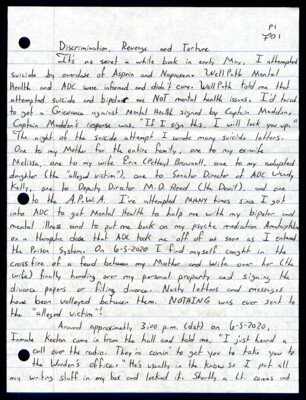 P1
Discrimination, Revenge and Torture
It's no secret a while back in early May, I attempted
suicide by overdose of Aspirin and Naproxen. WellPath Mental
Health and ADC were informed and didn't care. WellPath told me that
attempted suicide and bipolar are NOT mental health issues. I'd tried
to get a Grievance against Mental Health signed by Captain Maddox.
Captain Maddox's response was, "If I sign this, I will lock you up."
The night of the suicide attempt I wrote many suicide letters.
One to my Mother for the entire family, one to my exwife
Melissa, one to my wife Erin Brownell, one to my adopted
daughter (the "alleged victim"), one to Senator Director of ADC Wendy
Kelly, one to Deputy Director M.D. Reed (the Devil), and one
to the A.P.W.A. I've attempted MANY times since I got
into ADC to get Mental Health to help me with my bipolar and
mental illness and to put me back on my psyche medication Amitriptyline
on a theraputic dose that ADC took me off of as soon as I entered
the Prison System. On 6-5-2020 I find myself caught in the
crossfire of a feud between my Mother and Wife over her (the
wife) finally handing over my personal property and signing the
divorce papers or filing divorce. Nasty letters and messages
have been volleyed between them. NOTHING was ever sent to
the "alleged victim"!
Around approximately 3:00 p.m. (dst) on 6-5-2020,
Inmate Keeton came in from the hall and told me, "I just heard a
call over the radio. They're comin' to get you to take you to
the Warden's office." He's usually in the know so I put all
my writing stuff in my box and locked it. Shortly a Lt. comes and